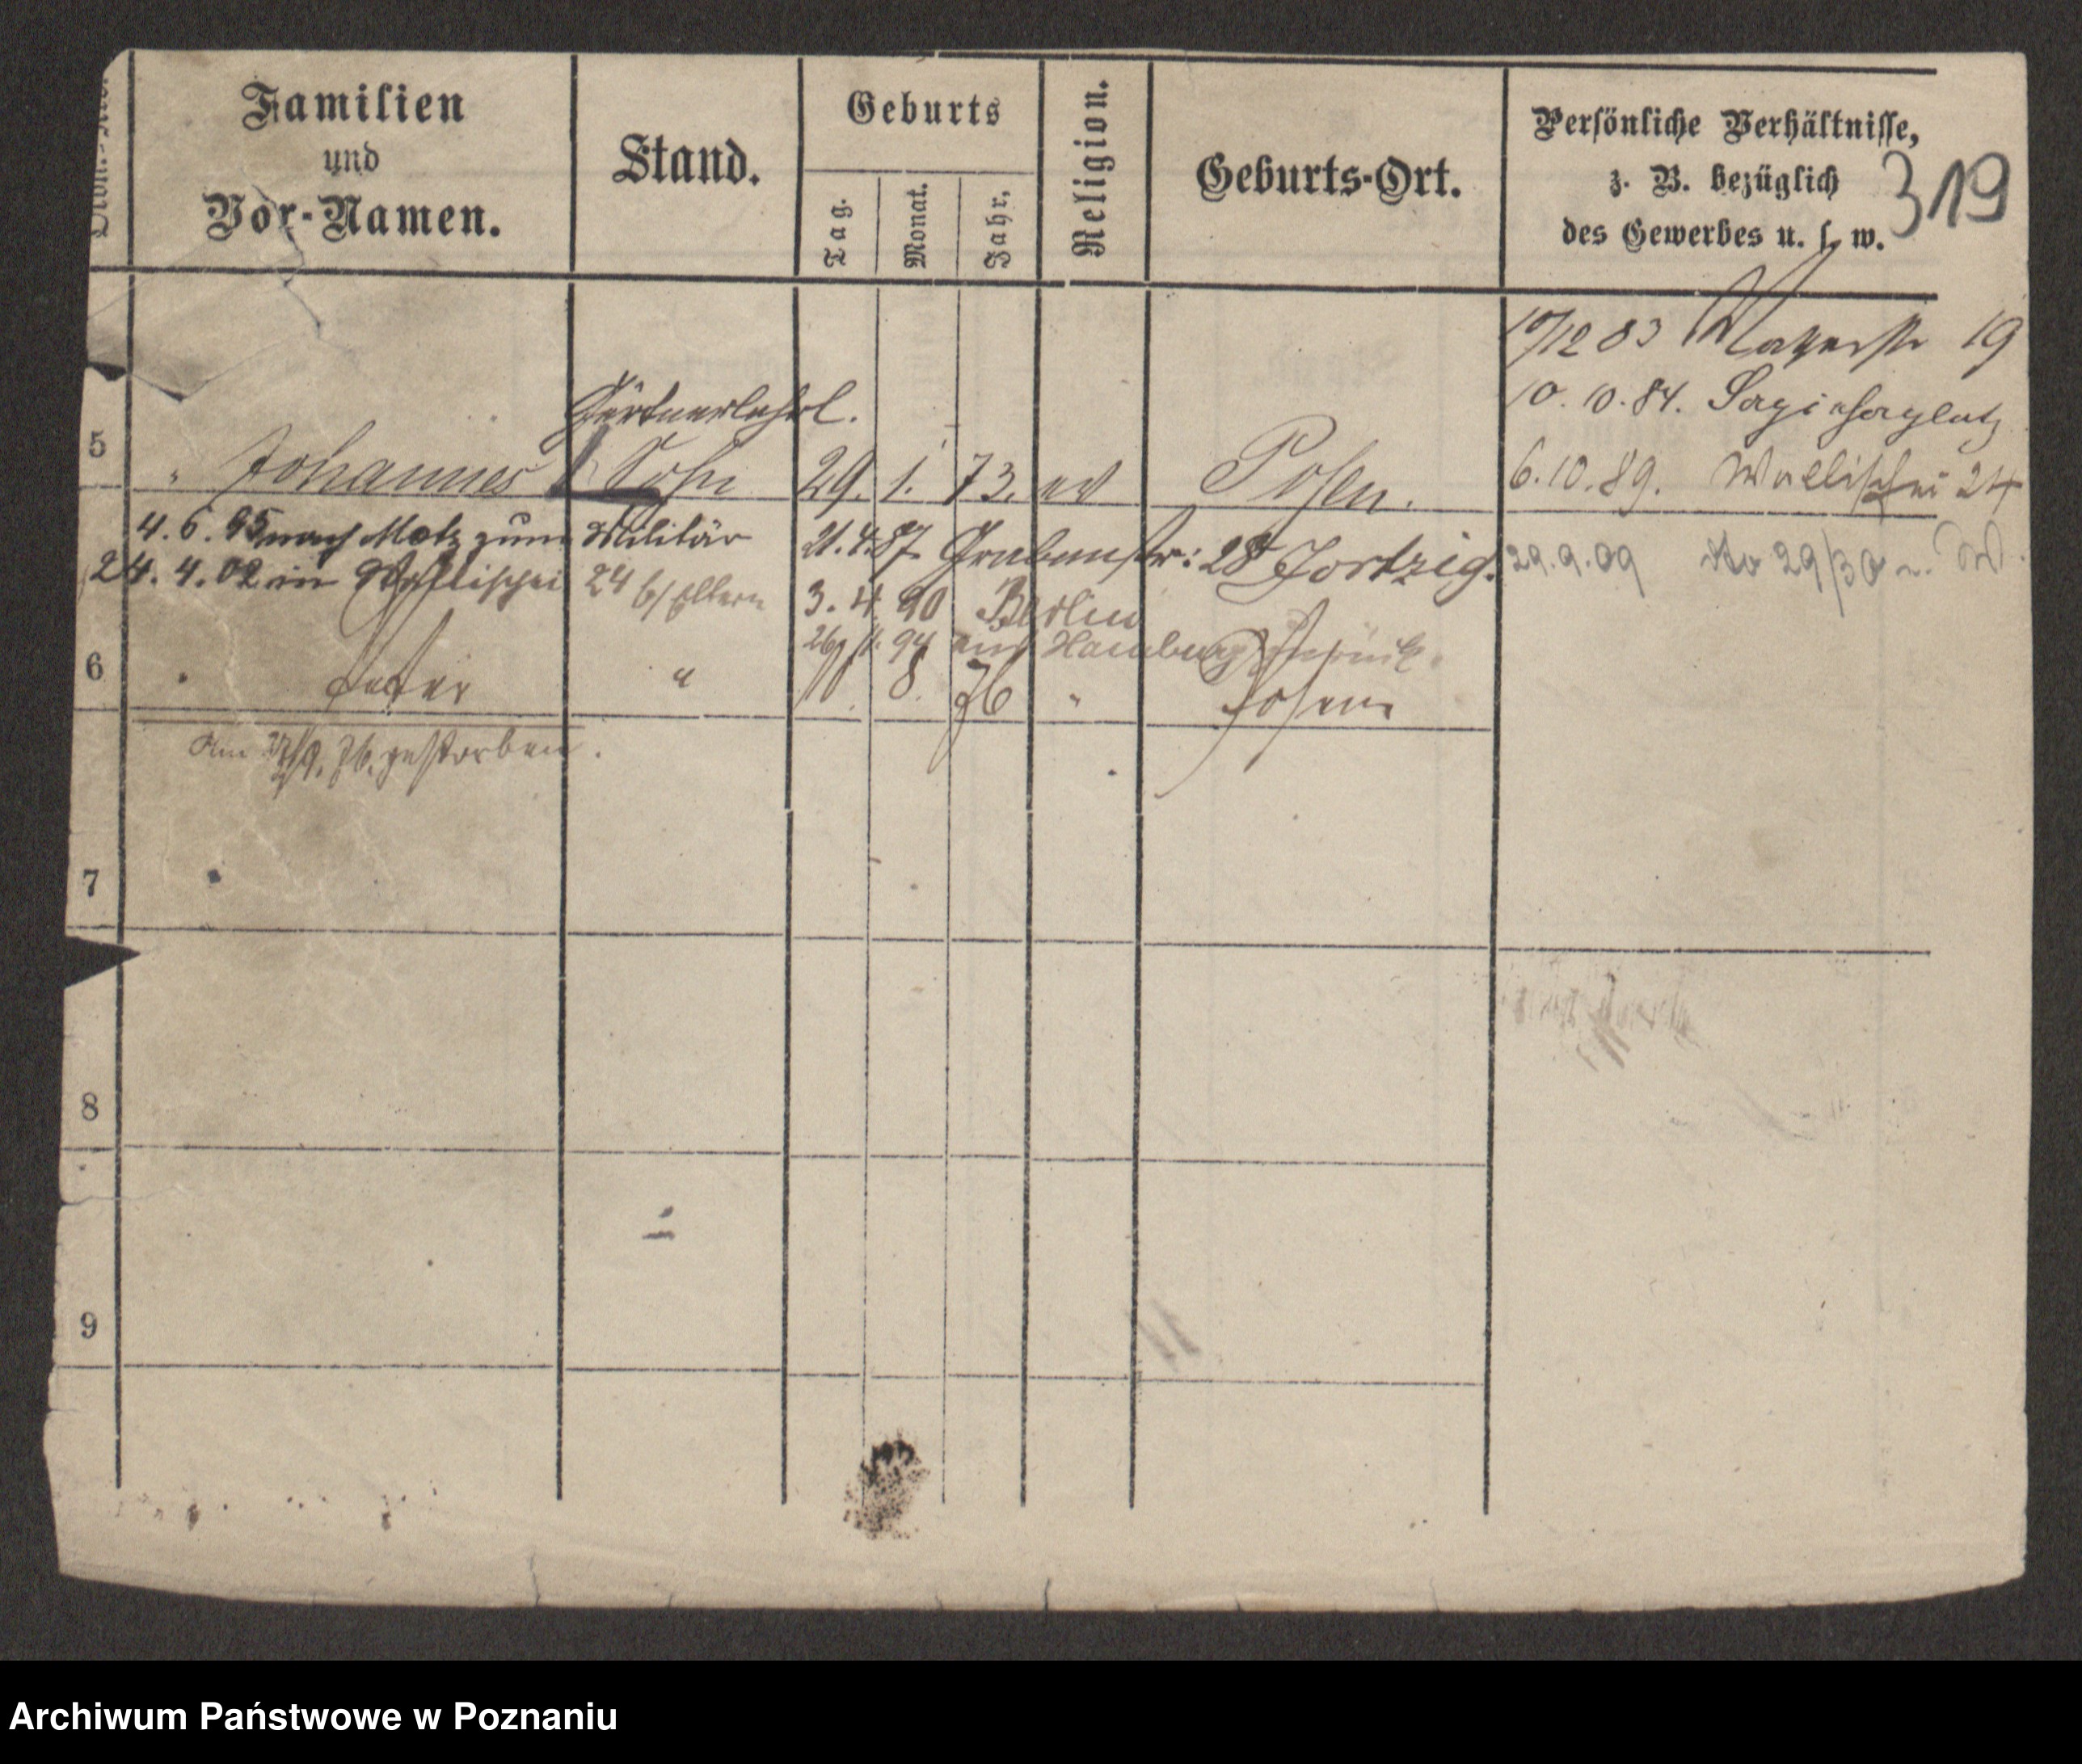 Familien
und
Vor-Namen.
Stand.
Geburts
Tag.
Monat.
Jahr.
Religion.
Geburts-Ort.
Persönliche Verhältnisse,
z. B. bezüglich
des Gewerbes u. s. w.
319
10/12 83 19
10.10.84. Sapiehaplatz
Gärtnerlehrl.
5 " Johannes Sohn 29. 1. 73. ev Posen. 6.10.89. Wallischei 24
4. 6. 95 nach Metz zum Militär 21.4.87 Grabenstr: 28 Jortzig. 29.9.09 dto 29/30 n. W.
24. 4. 02 in Wallischei 24 b/ Eltern 3. 4. 90 Berlin
26/11. 94 aus Hamburg zurück.
6 " " 10. 8. 76 " Posen
Am 27/9. 76. gestorben.
7
8
9
Archiwum Państwowe w Poznaniu